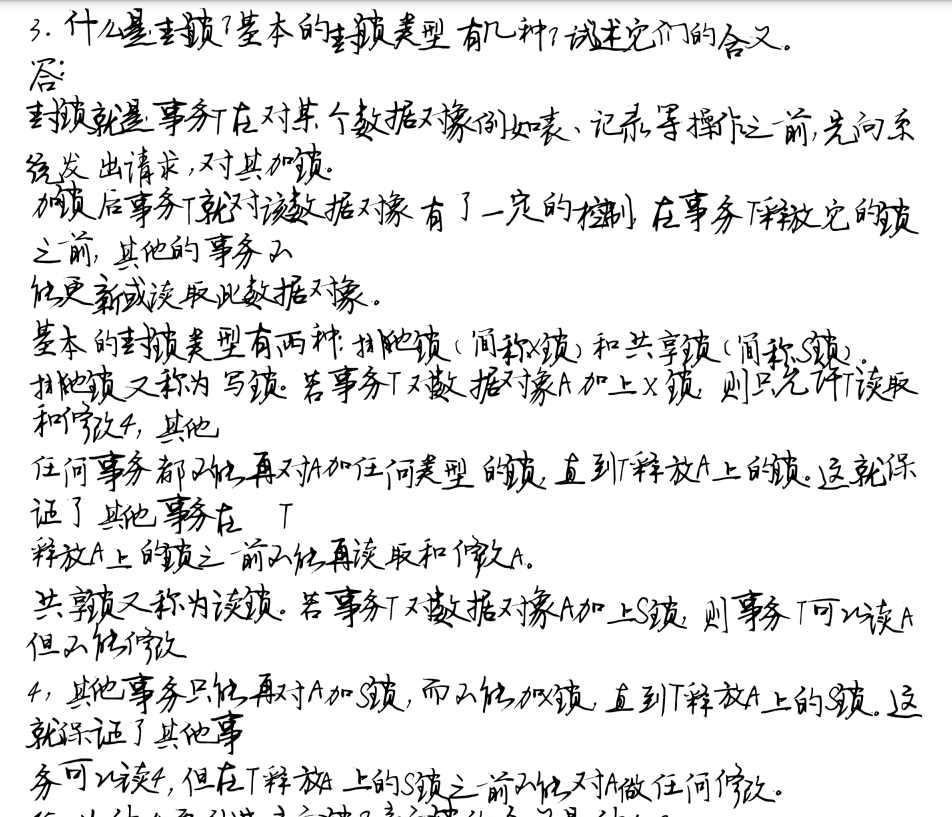 3. 什么是封锁?基本的封锁类型有几种?试述它们的含义。
答:
封锁就是事务T在对某个数据对象例如表、记录等操作之前,先向系
统发出请求,对其加锁.
加锁后事务T就对该数据对象有了一定的控制,在事务T释放它的锁
之前,其他的事务不
能更新或读取此数据对象。
基本的封锁类型有两种:排他锁(简称X锁)和共享锁(简称S锁)。
排他锁又称为写锁。若事务T对数据对象A加上X锁,则只允许T读取
和修改4,其他
任何事务都不能再对A加任何类型的锁,直到T释放A上的锁。这就保
证了其他事务在 T
释放A上的锁之前不能再读取和修改A。
共享锁又称为读锁。若事务T对数据对象A加上S锁,则事务T可以读A
但不能修改
4,其他事务只能再对A加S锁,而不能加X锁,直到T释放A上的S锁。这
就保证了其他事
务可以读4,但在T释放A上的S锁之前不能对A做任何修改。